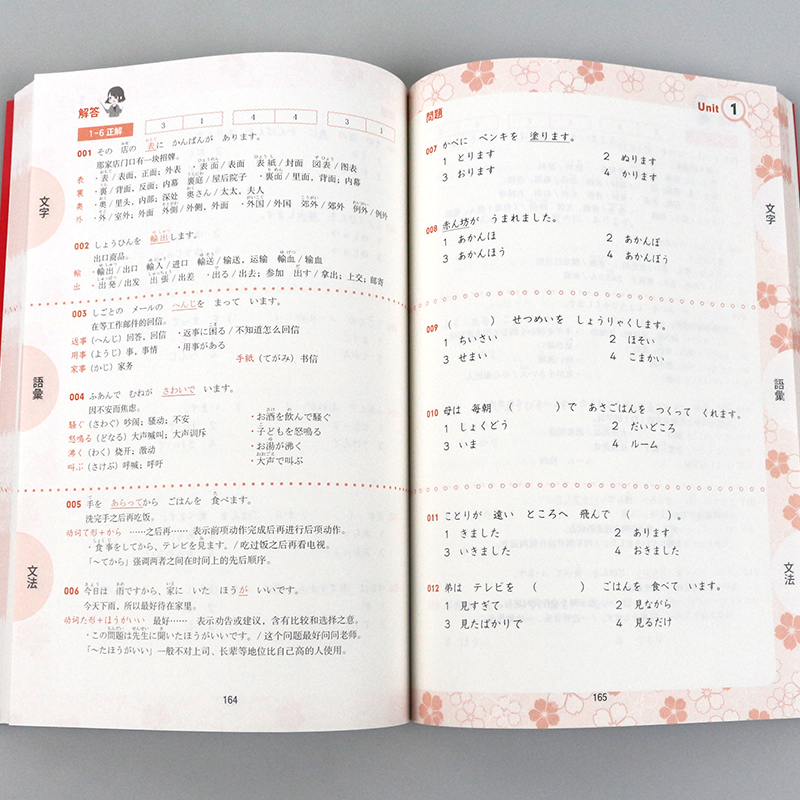 解答
3 1 4 4 3 1
1-6 正解
001 その 店の 表に かんばんが あります。
那家店门口有一块招牌。
表・表/表面，正面；外表 ・表面/表面 表紙/封面 図表/图表
裏・裏/背面，反面；内幕 裏庭/屋后院子 ・裏面/里面，背面；内幕
奥・奥/里头，内部；深处 奥さん/太太，夫人
外・外/室外；外面 外側/外侧，外面 ・外国/外国 郊外/郊外 例外/例外
002 しょうひんを 輸出します。
出口商品。
輸・輸出/出口 輸入/进口 輸送/输送，运输 輸血/输血
出・出発/出发 出張/出差 ・出る/出去；参加 出す/拿出；上交；邮寄
003 しごとの メールの へんじを まって います。
在等工作邮件的回信。
返事（へんじ）回答，回信 ・返事に困る/不知道怎么回信
用事（ようじ）事，事情 ・用事がある
家事（かじ）家务 手紙（てがみ）书信
004 ふあんで むねが さわいで います。
因不安而焦虑。
騒ぐ（さわぐ）吵闹；骚动；不安 ・お酒を飲んで騒ぐ
怒鳴る（どなる）大声喊叫；大声训斥 ・子どもを怒鳴る
沸く（わく）烧开；激动 ・お湯が沸く
叫ぶ（さけぶ）呼喊；呼吁 ・大声で叫ぶ
005 手を あらってから ごはんを 食べます。
洗完手之后再吃饭。
动词て形+から ……之后再…… 表示前项动作完成后再进行后项动作。
・食事をしてから、テレビを見ます。/吃过饭之后再看电视。
「～てから」强调两者之间在时间上的先后顺序。
006 今日は 雨ですから、家に いた ほうが いいです。
今天下雨，所以最好待在家里。
动词た形+ほうがいい 最好…… 表示劝告或建议，含有比较和选择之意。
・この問題は先生に聞いたほうがいいです。/这个问题最好问问老师。
「～たほうがいい」一般不对上司、长辈等地位比自己高的人使用。
文字
語彙
文法
164
問題
Unit 1
007 かべに ペンキを 塗ります。
1 とります 2 ぬります
3 おります 4 かります
008 赤ん坊が うまれました。
1 あかんほ 2 あかんぼ
3 あかんほう 4 あかんぼう
009 （ ） せつめいを しょうりゃくします。
1 ちいさい 2 ほそい
3 せまい 4 こまかい
010 母は 毎朝 （ ）で あさごはんを つくって くれます。
1 しょくどう 2 だいどころ
3 いま 4 ルーム
011 ことりが 遠い ところへ 飛んで （ ）。
1 きました 2 あります
3 いきました 4 おきました
012 弟は テレビを （ ） ごはんを 食べて います。
1 見すぎて 2 見ながら
3 見たばかりで 4 見るだけ
文字
語彙
文法
165